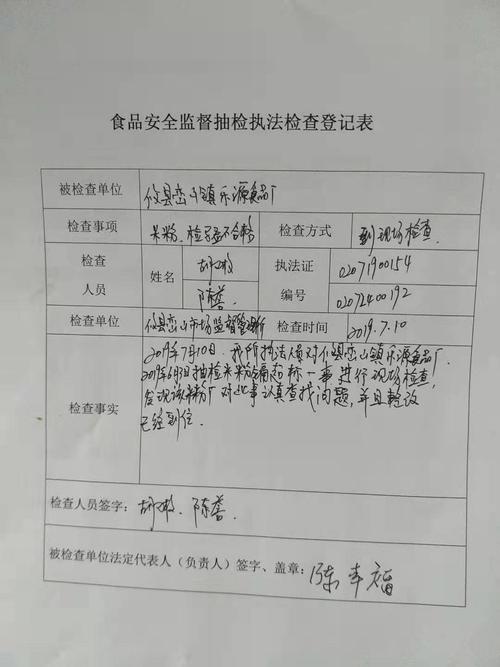 食品安全监督抽检执法检查登记表
被检查单位 攸县峦山镇乐源食品厂
检查事项 米粉 检验不合格 检查方式 到现场检查.
检查人员 姓名 胡 执法证编号 02071900154
陈誉. 02072400192
检查单位 攸县峦山市场监督管理所 检查时间 2019.7.10
检查事实
2019年7月10日.我所执法人员对攸县峦山镇乐源食品厂.
2019年 抽检米粉 超标一事进行现场检查,
发现该 粉厂对此事认真查找问题,并且整改
已经到位.
检查人员签字: 胡 、陈誉.
被检查单位法定代表人（负责人）签字、盖章: 陈幸福